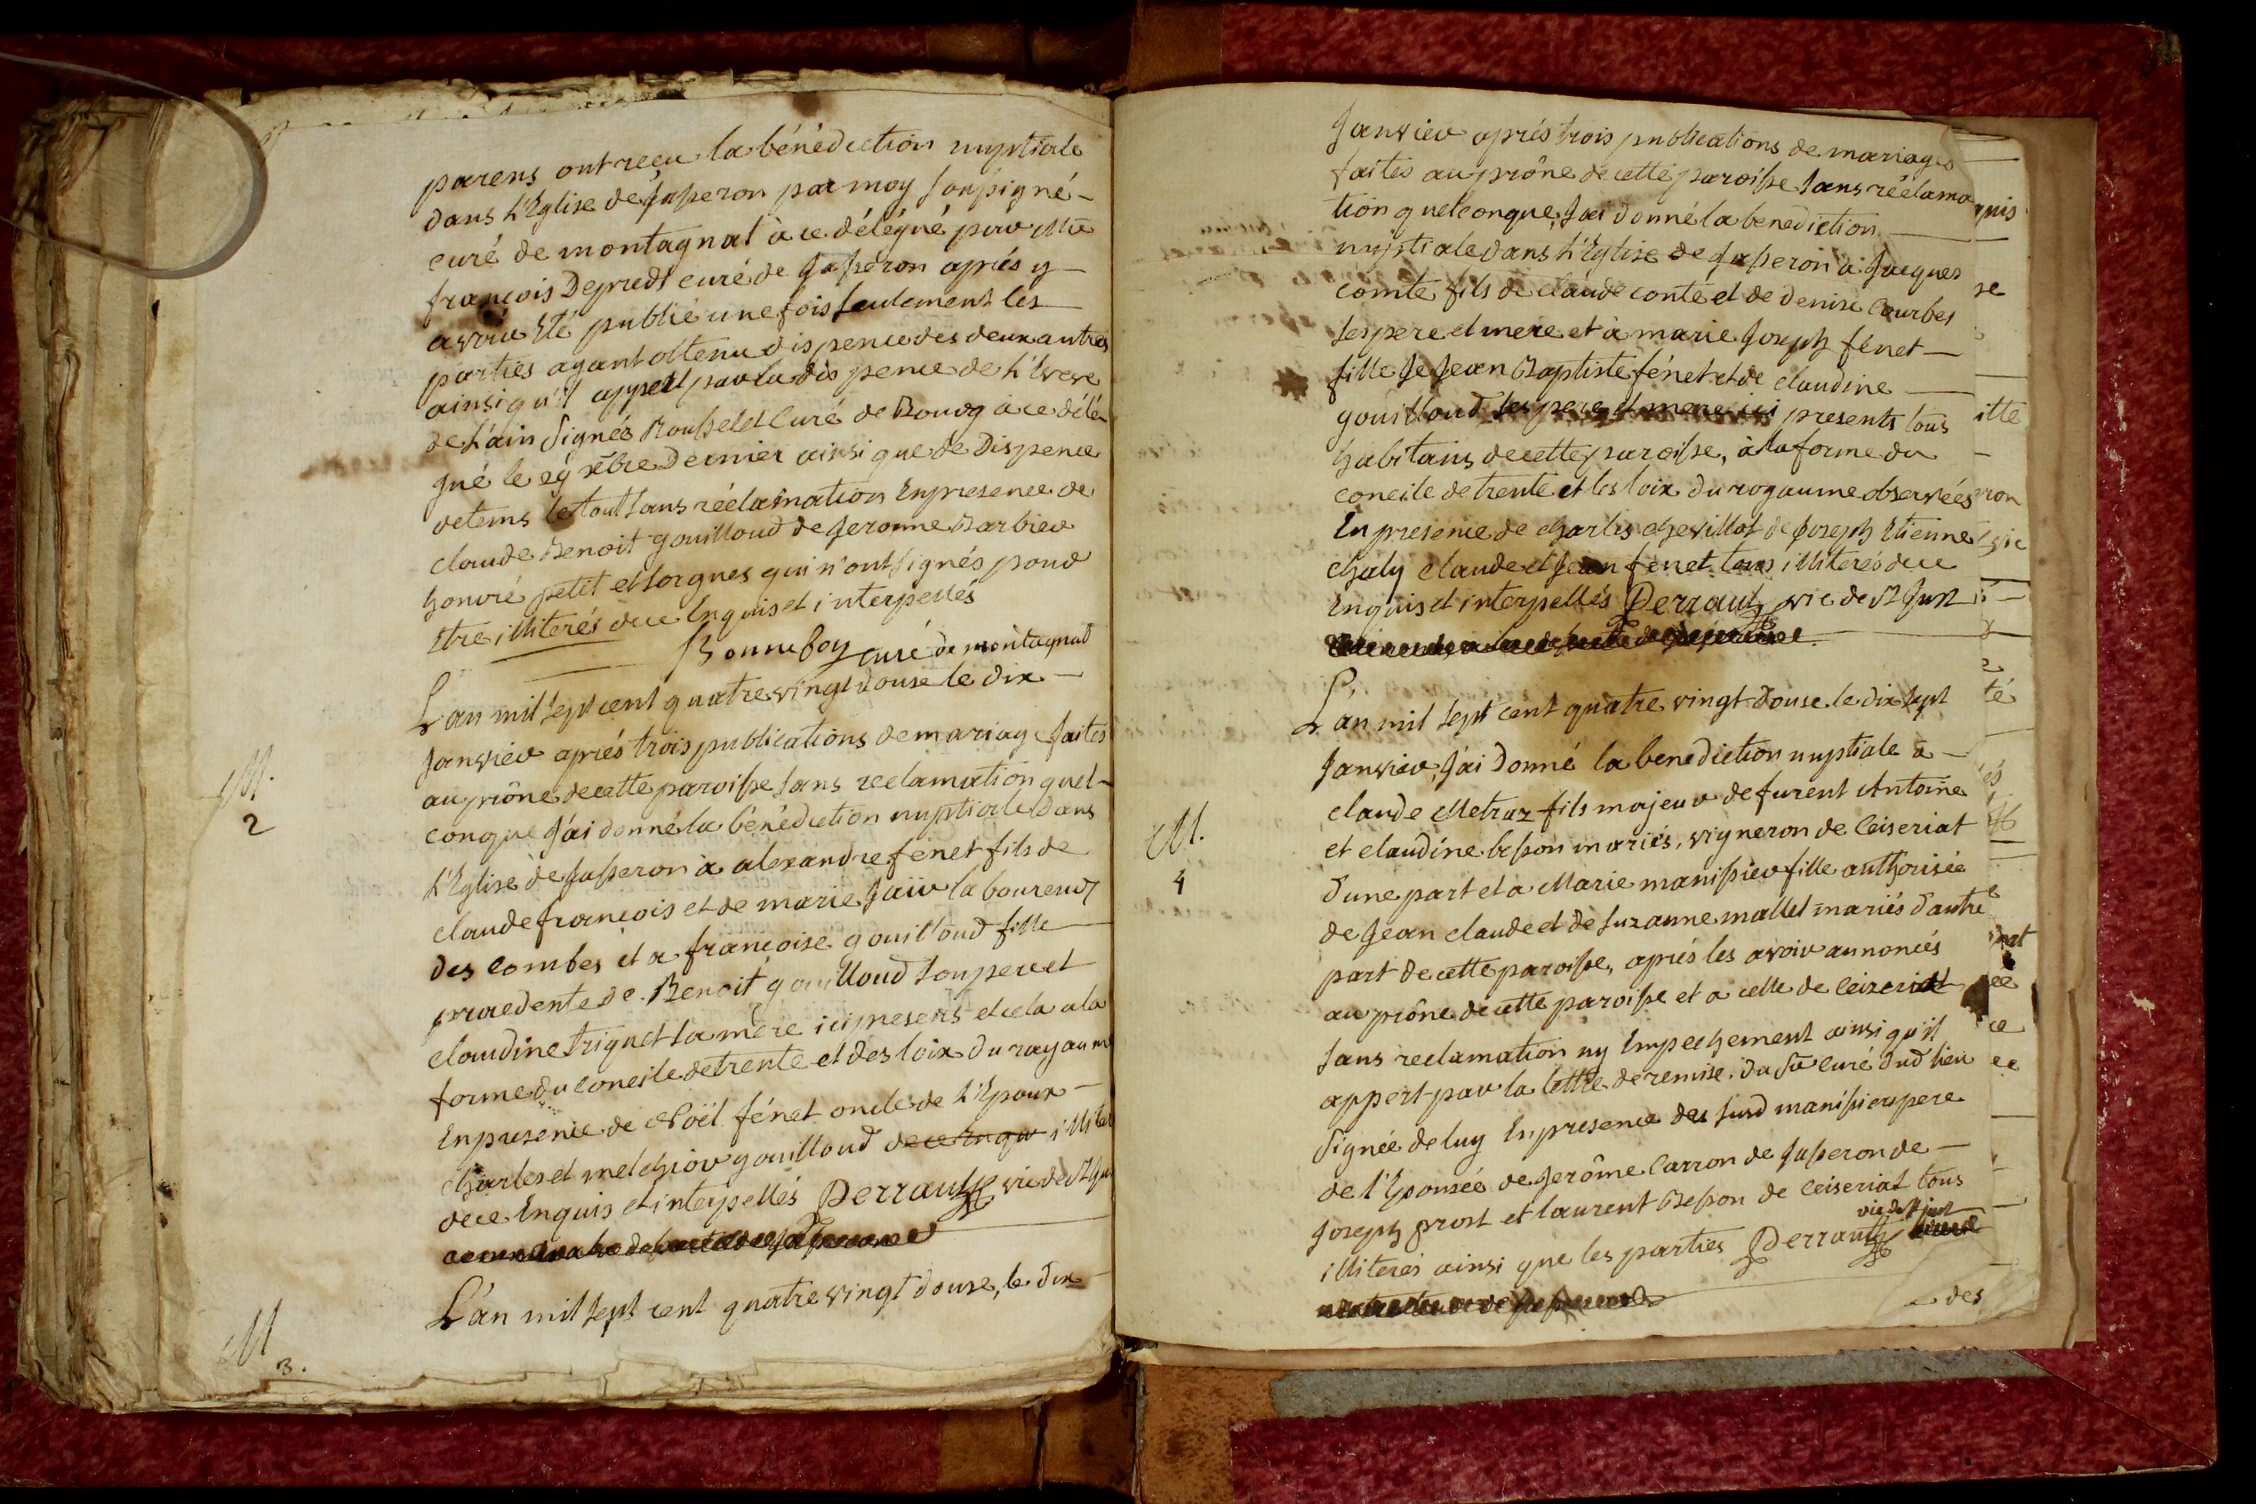 parens ont reçu la bénédiction nuptiale
dans L'Eglise de Jasseron par moy soussigné
curé de montagnat à ce délégué par Mr
françois Depredt curé de Jasseron après y
avoir Eté publié une fois seulement les
parties ayant obtenu dispence des deux autres
ainsi qu'il appert par la dispence de L'Eveve
de L'ain Signés Rousselet Curé de Bourg à ce délé
gué le dernier ainsi que de Dispence
de tems le tout sans réclamation En presence de
claude Benoit gouilloud de Jerome Barbier
honoré petit et Jorgues qui n'ont signés pour
Etre illiterés de ce Enquis et interpellés
Bonnefoy curé de montagnat
M.
2
L'an mil sept cent quatre vingt douse le dix
Janvier après trois publications de mariage faites
au prône de cette paroisse sans reclamation quel-
conque J'ai donné la bénédiction nuptiale dans
L'Eglise de Jasseron à alexandre fénet fils de
claude françois et de marie Jaiir laboureur
des Combes et a françoise gouilloud fille
procedente de Benoit gouilloud son pere et
claudine triquet sa mère ici presens et cela a la
forme du Concile de trente et des loix du royaume
En presence de Noël fénet oncle de L'Epoux
charles et melchior gouilloud de ce Enqu illite
de ce Enquis et interpellés Perraut vic de St Ju
M
3.
L'an mil sept cent quatre vingt douse, le dix
Janvier après trois publications de mariages
faites au prône de cette paroisse sans réclama
tion quelconque, J'ai donné la benediction
nuptiale dans L'Eglise de Jasseron à Jacques
comte fils de claude conte et de denise Courbet
ses pere et mere et à marie Joseph fénet
fille de Jean Baptiste fénet et de claudine
gouilloud ses pere et mere ici presents tous
habitans de cette paroisse, à la forme du
concile de trente et les loix du royaume observées
En presence de charles chevillot de Joseph Etienne
chaly claude et Jean fenet tous illiterés de ce
Enquis et interpellés Perraut vic de St Just
M.
4
L'an mil sept cent quatre vingt douse le dix sept
Janvier, J'ai donné la benediction nuptiale a
claude Metraz fils majeur de furent Antoine
et claudine besson mariés, vigneron de Ceiseriat
d'une part et a Marie manissier fille authorisée
de Jean claude et de Suzanne mallet mariés d'autre
part de cette paroisse, après les avoir annoncés
au prône de cette paroisse et a celle de Ceizeriat
sans reclamation ny Empechement ainsi qu'il
appert par la lettre de remise du Sr Curé dud lieu
Signée de luy En presence des susd manissier pere
de l'Epousée de Jerôme Carron de Jasseron de
Joseph prost et laurent Besson de Ceiseriat tous
illiterés ainsi que les parties Perraut vic de St just
des